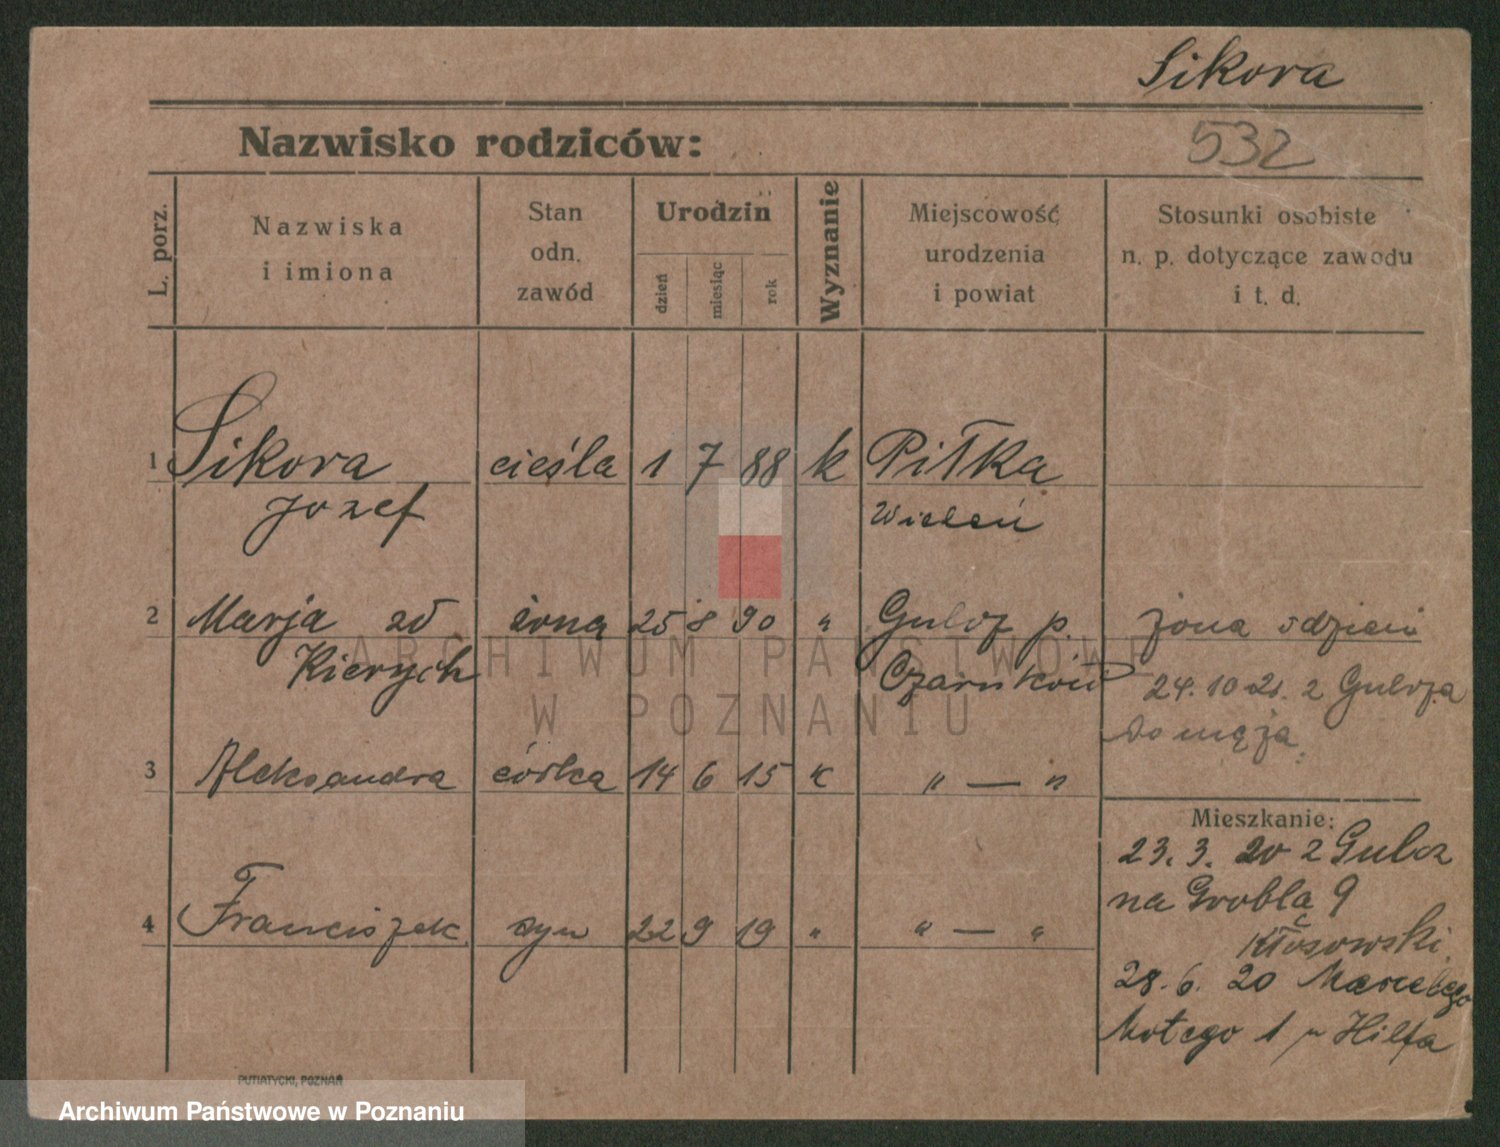 Sikora
Nazwisko rodziców:
532
L. porz.
Nazwiska
i imiona
Stan
odn.
zawód
Urodzin
dzień
miesiąc
rok
Wyznanie
Miejscowość
urodzenia
i powiat
Stosunki osobiste
n. p. dotyczące zawodu
i t. d.
1 Sikora cieśla 1 7 88 k Piłka
Jozef Wieleń
2 Marja zd żona 25 8 90 " Gulcz p. żona i dzieci
Kierych Czarnków 24. 10 21. z Gulcza
do męża.
3 Aleksandra córka 14 6 15 k " — "
Mieszkanie:
23. 3. 20 z Gulcz
na Grobla 9
4 Franciszek syn 22 9 19 " " — "
Kłosowski.
28. 6. 20
1 Hilfa
PUTIATYCKI, POZNAŃ
ARCHIWUM PAŃSTWOWE
W POZNANIU
Archiwum Państwowe w Poznaniu